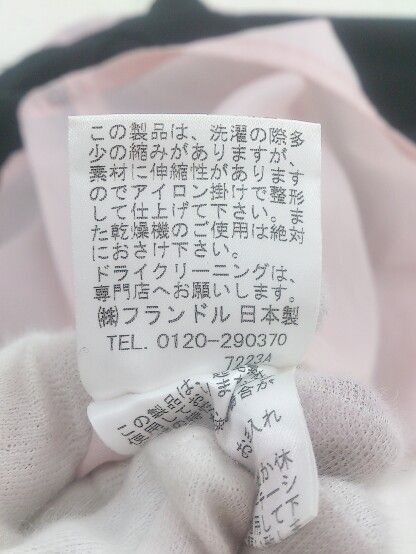 この製品は、洗濯の際多
少の縮みがありますが、
素材に伸縮性があります
のでアイロン掛けで整形
して仕上げて下さい。ま
た乾燥機のご使用は絶対
におさけ下さい。
ドライクリーニングは、
専門店へお願いします。
㈱フランドル 日本製
TEL. 0120-290370
72234
入れ
か休